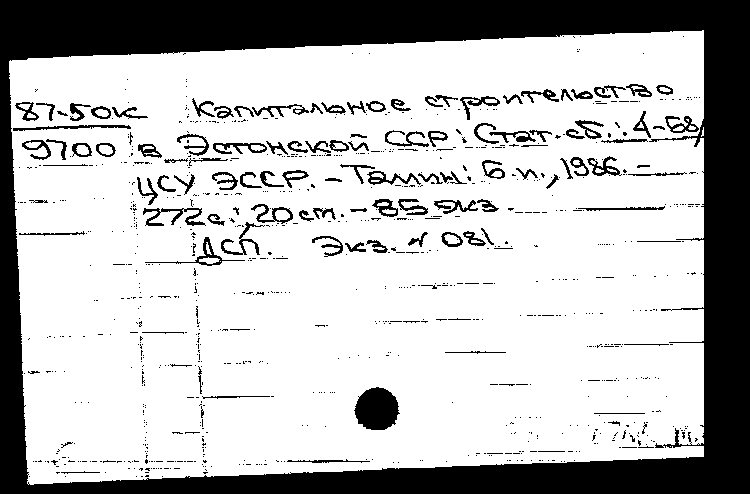 87-50к Капитальное строительство
9700 в Эстонской ССР: Стат. сб.: 4-58/
ЦСУ ЭССР. - Таллин: Б.и., 1986. -
272с.; 20 см. - 85 экз.
ДСП. Экз. № 081.